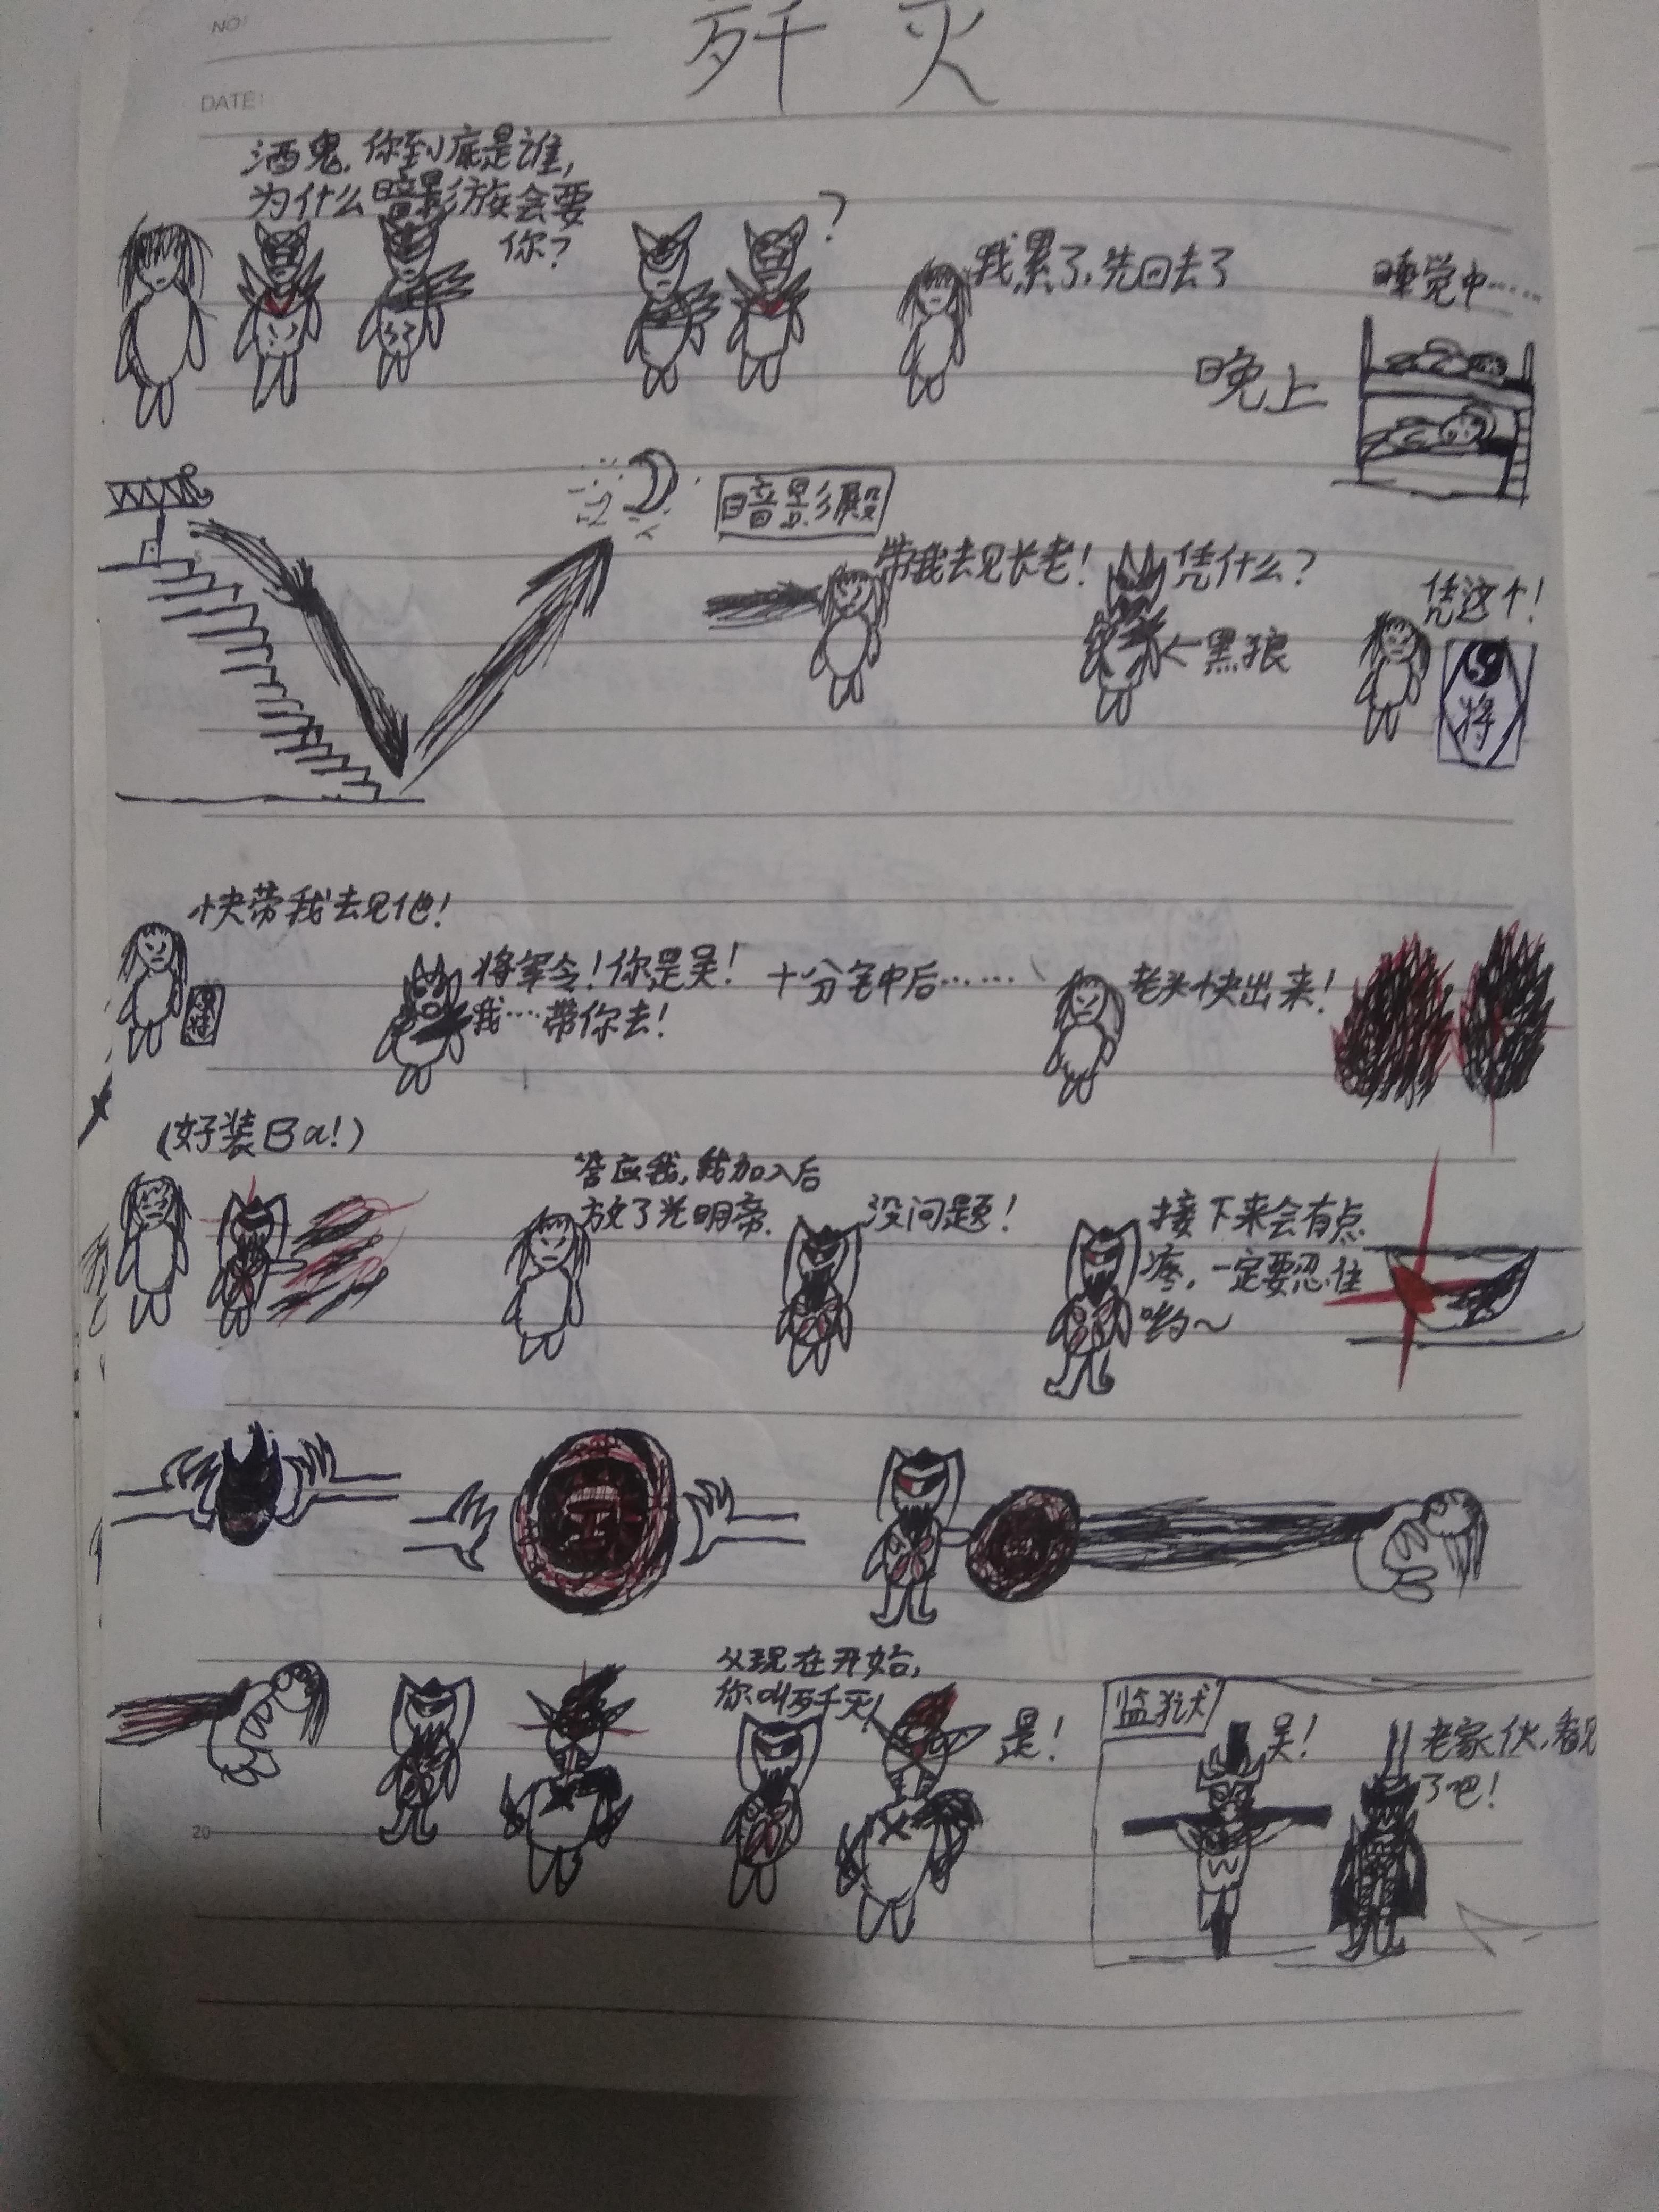 NO:
歼灭
DATE:
酒鬼,你到底是谁,
为什么暗影族会要
你?
?
我累了,先回去了
睡觉中……
晚上
暗影殿
带我去见长老!
凭什么?
←黑狼
凭这个!
将
快带我去见他!
将军令!你是吴!
我…带你去!
将
十分笔中后……
老头快出来!
(好装Ba!)
答应我,我加入后
放了光明帝.
没问题!
接下来会有点
疼,一定要忍住
哟~
从现在开始,
你叫歼灭!
是!
监狱
吴!
老家伙,看见
了吧!
20